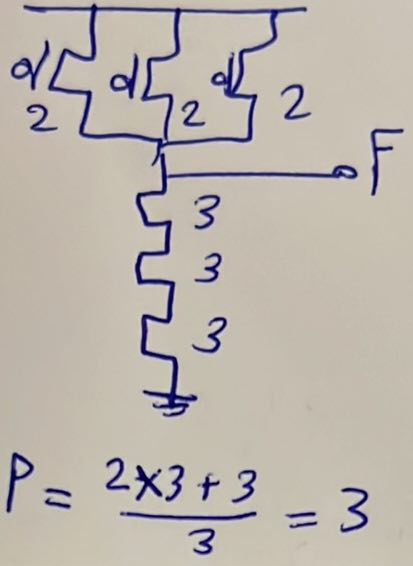 2 2 2
F
3
3
3
P = 2×3+3 / 3 = 3